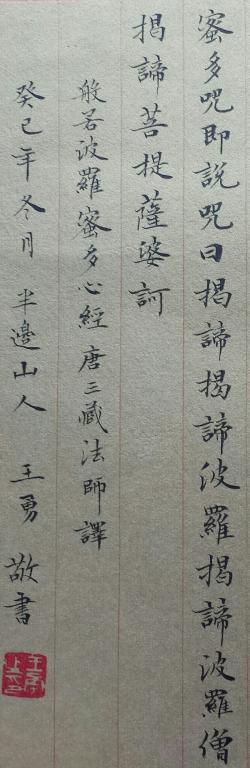 蜜多咒即說咒曰揭諦揭諦波羅揭諦波羅僧
揭諦菩提薩婆訶
般若波羅蜜多心經唐三藏法師譯
癸巳年冬月 半邊山人 王勇 敬書